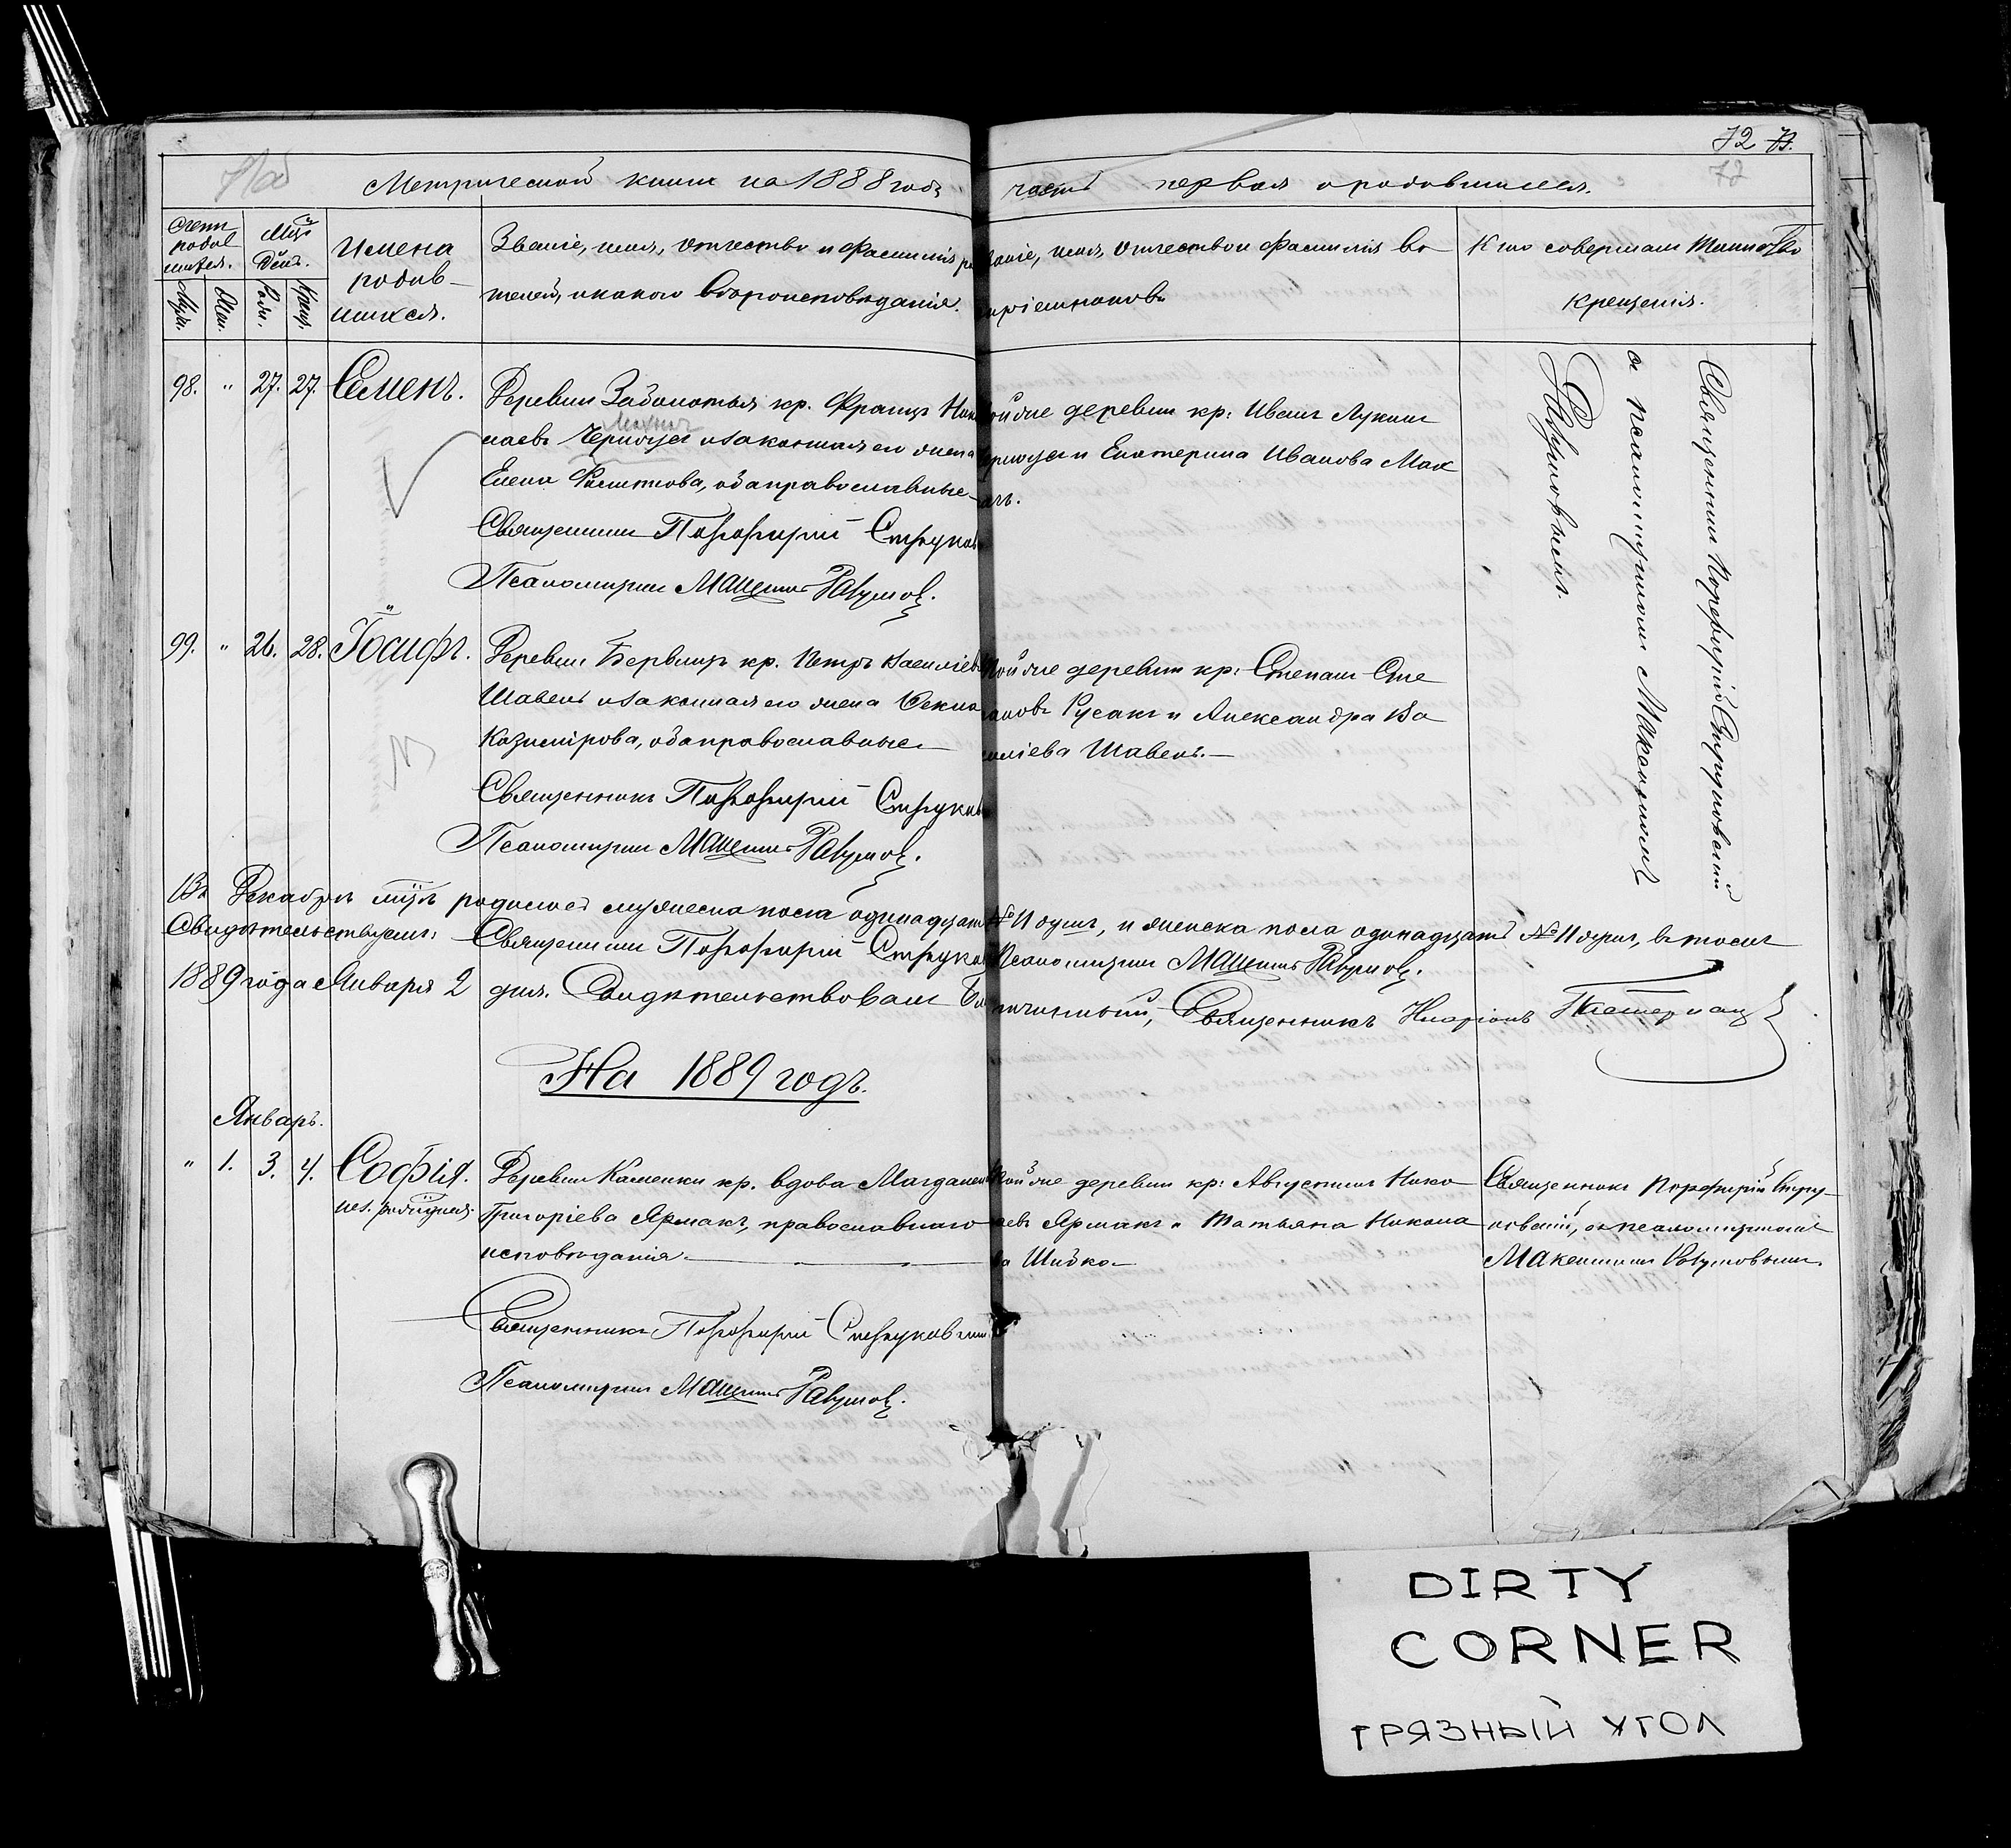 72
72
Метрической книги на 1888 годъ часть первая о родившихся.
Счетъ родив шихся.
Муж. Жен.
Мцъ и День.
Рожд. Крещ.
Имена родив- шихся.
Званіе, имя, отчество и фамилія ро
телей, и какого вѣроисповѣданія.
Званіе, имя, отчество и фамилія во
спріемниковъ
Кто совершалъ Таинство
крещенія.
98. " 27. 27. Семенъ.
Деревни Заболотья кр. Францъ Ник
Махнач
лаевъ Черноусъ и законная его жена
Елена Филиппова, оба православные
Священникъ Порфирій Струков
Псаломщикъ Макс Разумов.
Той же деревни кр: Иванъ Лукинъ
Черноусъ и Екатерина Иванова Мах
начъ.
Священникъ Порфирій Струковскій
съ псаломщикомъ Максимомъ
Разумовымъ.
99. " 26. 28. Іосифъ.
Деревни кр. Петръ Василіевъ
Шавель и законная его жена Фекла
Казимірова, оба православные
Священникъ Порфирій Струков
Псаломщикъ Макс Разумов.
Той же деревни кр: Степанъ Сте
пановъ Русакъ и Александра Ва
силіева Шавель.
Въ Декабрѣ мцѣ родилось мужеска пола одинадцать № 11 душъ, и женска пола одинадцать № 11 душъ, въ томъ
Свидѣтельствуемъ: Священникъ Порфирій Струков Псаломщикъ Макс Разумов.
1889 года Января 2 дня. Свидѣтельствовалъ Благочинный, Священникъ Иларіонъ
На 1889 годъ.
Январь.
" 1. 3. 4. Софія.
Деревни Каменки кр. вдова Магдалена
Григоріева Ярмакъ, православнаго
исповѣданія.
Священникъ Порфирій Струковскій
Псаломщикъ Макс Разумов.
Той же деревни кр: Августинъ Нико
лаевъ Ярмакъ и Татьяна Никола
ва Шибко
Священникъ Порфирій Стру-
ковскій, съ псаломщикомъ
Максимомъ Разумовымъ.
DIRTY
CORNER
ГРЯЗНЫЙ УГОЛ